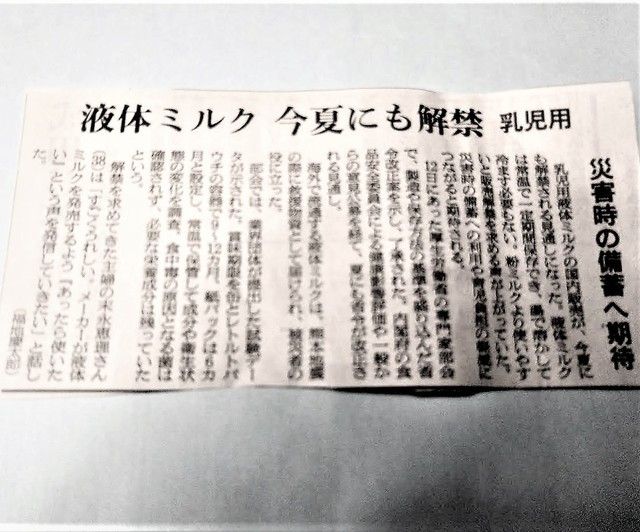 液体ミルク 今夏にも解禁 乳児用
災害時の備蓄へ期待
乳児用液体ミルクの国内販売が、今夏に
も解禁される見通しになった。液体ミルク
は常温で一定期間保存でき、湯で溶かして
冷ます必要もない。粉ミルクより使いやす
いと販売解禁を求める声が上がっていた。
災害時の備蓄への利用や育児負担の軽減に
つながると期待される。
12日にあった厚生労働省の専門家部会
で、製造や保存方法の基準を盛り込んだ省
令改正案を示し、了承された。内閣府の食
品安全委員会による健康影響評価や一般か
らの意見公募を経て、夏にも省令が改正さ
れる見通し。
海外で流通する液体ミルクは、熊本地震
の際に救援物資として届けられ、被災者の
役に立った。
部会では、業界団体が提出した試験デー
タが示された。賞味期限を缶とレトルトパ
ウチの容器で9〜12カ月、紙パックは6カ
月と設定し、常温で保管して成分や衛生状
態の変化を調査。食中毒の原因となる菌は
確認されず、必要な栄養成分は残っていた
という。
解禁を求めてきた主婦の末永恵理さん
(38)は「すごくうれしい。メーカーが液体
ミルクを発売するよう『あったら使いた
い』という声を発信していきたい」と話し
た。